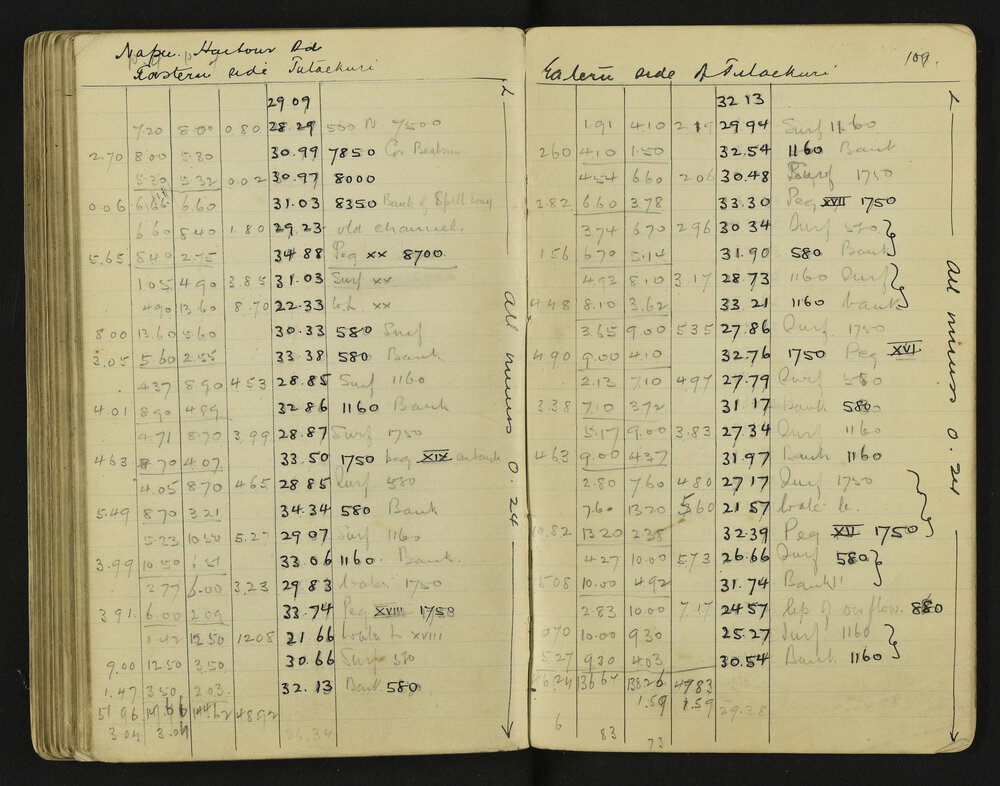 Napier Harbour Bd
Eastern side Tutaekuri
29 09
7.20 8.00 0.80 28.29 500 N 7500
2.70 8.00 5.30 30.99 7850 Cor Beatson
5.30 5.32 0.02 30.97 8000
0.06 6.66 6.60 31.03 8350 Bank of Spill way
6.60 8.40 1.80 29.23 old channel.
5.65 8.40 2.75 34.88 Peg xx 8700
1.05 4.90 3.85 31.03 Surf xx
4.90 13.60 8.70 22.33 W.L xx
8.00 13.60 5.60 30.33 580 Surf
3.05 5.60 2.55 33.38 580 Bank
4.37 8.90 4.53 28.85 Surf 1160
4.01 8.90 4.89 32.86 1160 Bank
4.71 8.70 3.99 28.87 Surf 1750
4.63 8.70 4.07 33.50 1750 peg XIX
4.05 8.70 4.65 28.85 Surf 580
5.49 8.70 3.21 34.34 580 Bank
5.23 10.50 5.27 29 07 Surf 1160
3.99 10.50 6.51 33.06 1160 Bank.
2.77 6.00 3.23 29 83 Water 1750
3.91 6.00 2.09 33.74 Peg XVIII 1750
1.42 12.50 12 08 21.66 Water L XVIII
9.00 12.50 3.50 30.66 Surf 580
1.47 3.50 2.03 32.13 Bank 580
51 96 48 92
3.04 3.04 26.34
All minus 0.24
Eastern side of Tutaekuri 109.
32 13
1.91 4.10 2.19 29.94 Surf 1160
2.60 4.10 1.50 32.54 1160 Bank
4.54 6.60 2.06 30.48 Surf 1750
2.82 6.60 3.78 33.30 Peg XVII 1750
3.74 6.70 2.96 30.34 Surf 580
1.56 6.70 5.14 31.90 580 Bank
4.93 8.10 3.17 28.73 1160 Surf
4.48 8.10 3.62 33.21 1160 bank
3.65 9.00 5.35 27.86 Surf 1750
4.90 9.00 4.10 32.76 1750 Peg XVI
2.13 7.10 4.97 27.79 Surf 580
3.38 7.10 3.72 31.17 Bank 580
5.17 9.00 3.83 27.34 Surf 1160
4.63 9.00 4.37 31.97 Bank 1160
2.80 7.60 4.80 27.17 Surf 1750
7.60 13.20 5.60 21.57 Water L.
10.82 13.20 2.38 32.39 Peg XV 1750
4.27 10.00 5.73 26.66 Surf 580
5.08 10.00 4.92 31.74 Bank "
2.83 10.00 7.17 24.57 Lip of overflow. 880
0.70 10.00 9.30 25.27 Surf 1160
5.27 9.30 4.03 30.54 Bank 1160
46.24 136 67 138 26 49.83
1.59 1.59 29.38
6 83 73
All minus 0.24